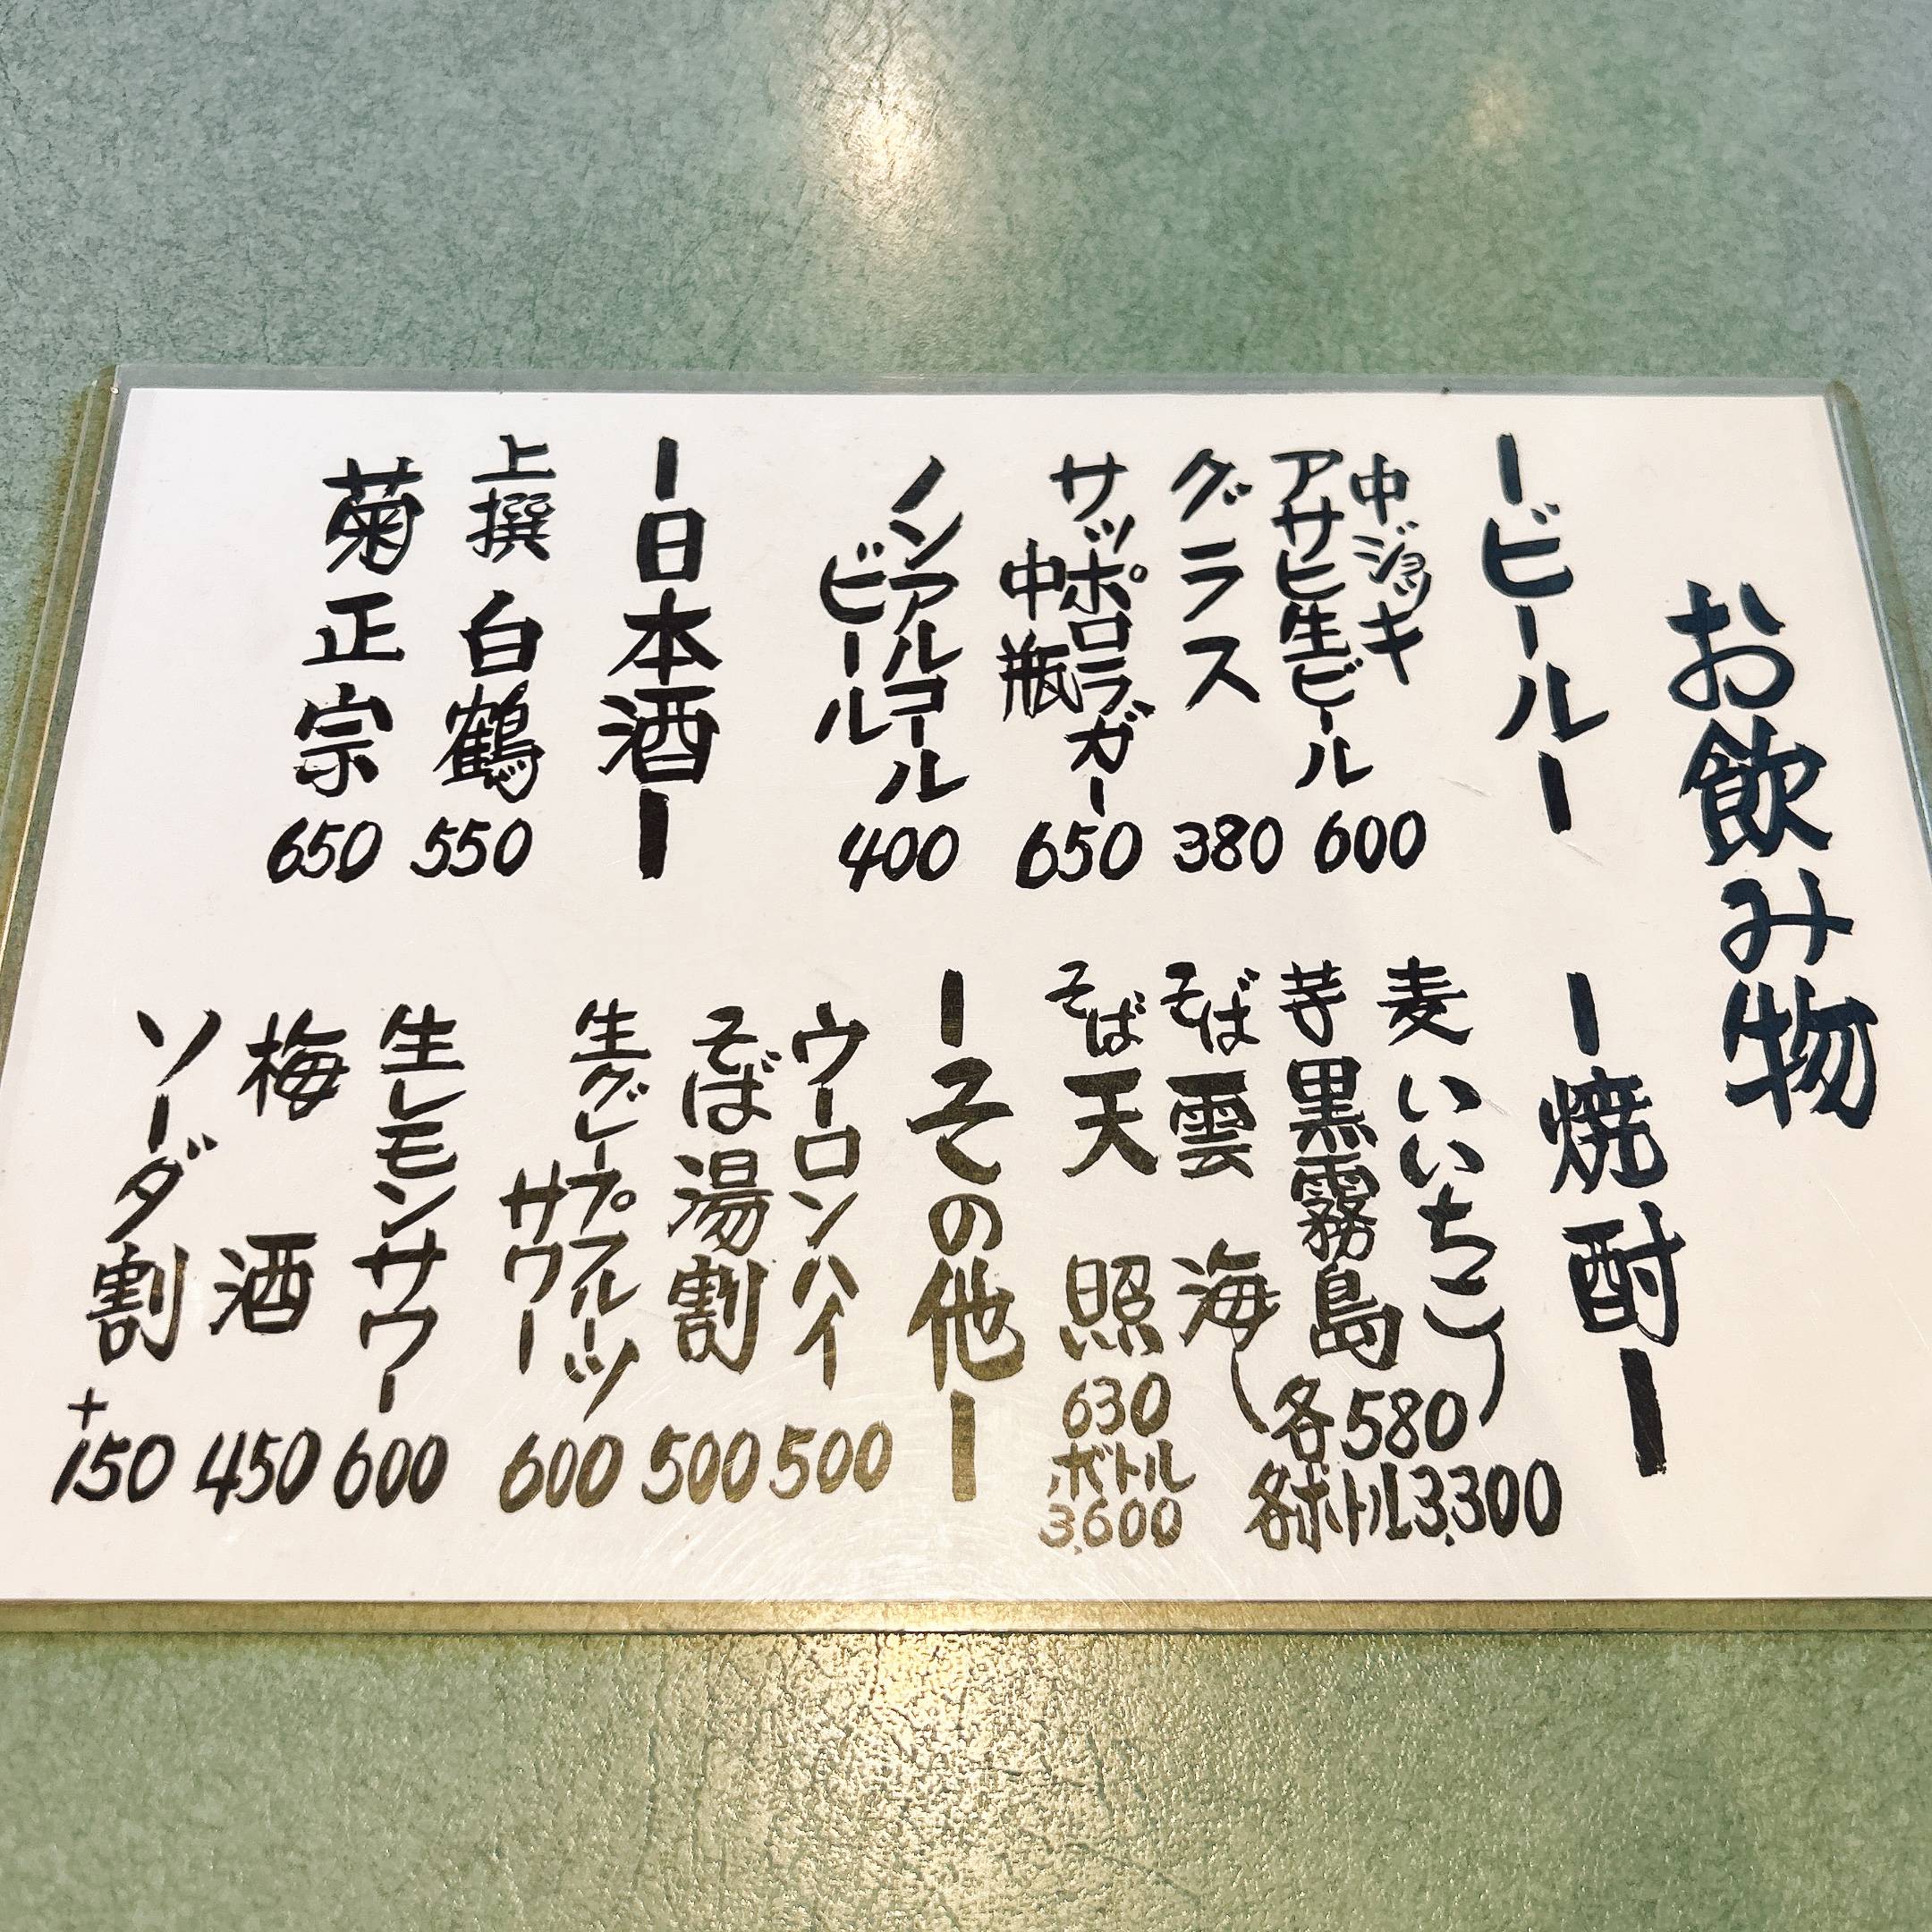 お飲み物
ービールー
中ジョッキ
アサヒ生ビール 600
グラス 380
サッポロラガー
中瓶 650
ノンアルコール
ビール 400
ー日本酒ー
上撰 白鶴 550
菊正宗 650
ー焼酎ー
麦 いいちこ
芋 黒霧島
そば 雲海
(各580)
各ボトル3,300
そば 天照 630
ボトル
3,600
ーその他ー
ウーロンハイ 500
そば湯割 500
生グレープフルーツ
サワー 600
生レモンサワー 600
梅酒 450
ソーダ割 +150